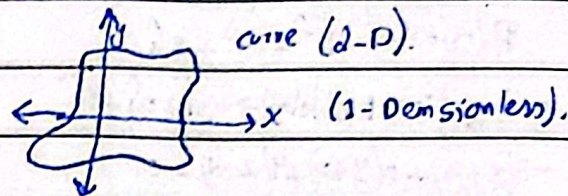 y
curve (2-D).
x (1-Densionless).